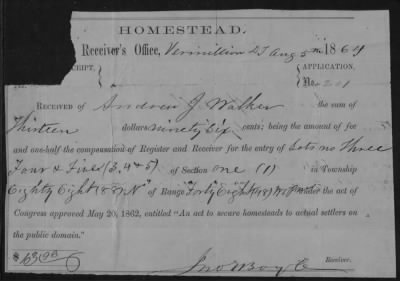 HOMESTEAD.
Receiver's Office, Vermillion D.T. Aug 5th 1864
CEIPT. APPLICATION,
No. 201
RECEIVED OF Andrew J. Walker the sum of
Thirteen dollars ninety Six cents; being the amount of fee
and one-half the compensation of Register and Receiver for the entry of Lots no Three
Four & Five (3, 4 & 5) of Section one (1) in Township
Eighty Eight (88) N of Range Forty Eight (48) under the act of
Congress approved May 20, 1862, entitled "An act to secure homesteads to actual settlers on
the public domain."
Receiver.